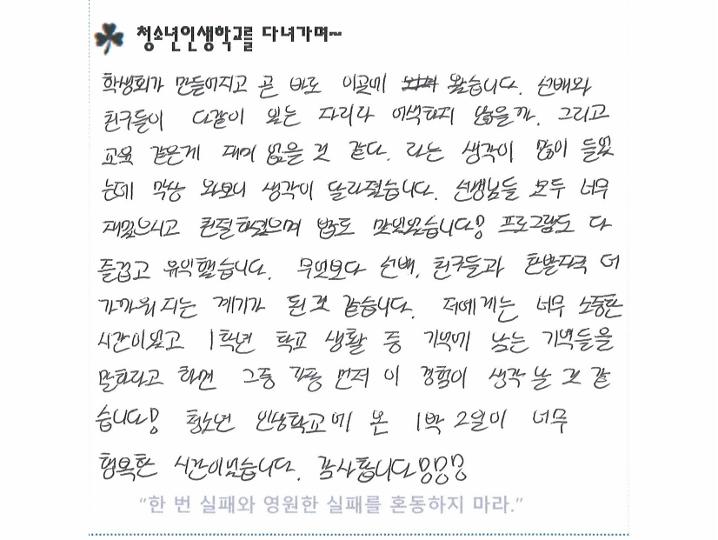 청소년인생학교를 다녀가며~
학생회가 만들어지고 곧 바로 이곳에 왔습니다. 선배와
친구들이 다같이 있는 자리라 어색하지 않을까. 그리고
교육 같은게 재미 없을 것 같다. 라는 생각이 많이 들었
는데 막상 와보니 생각이 달라졌습니다. 선생님들 모두 너무
재밌으시고 친절하셨으며 밥도 맛있었습니다! 프로그램도 다
즐겁고 유익했습니다. 무엇보다 선배, 친구들과 한발자국 더
가까워 지는 계기가 된 것 같습니다. 저에게는 너무 소중한
시간이었고 1학년 학교 생활 중 기억에 남는 기억들을
말하라고 하면 그중 가장 먼저 이 경험이 생각 날 것 같
습니다! 청소년 인생학교에 온 1박 2일이 너무
행복한 시간이었습니다. 감사합니다!!!
“한 번 실패와 영원한 실패를 혼동하지 마라.”